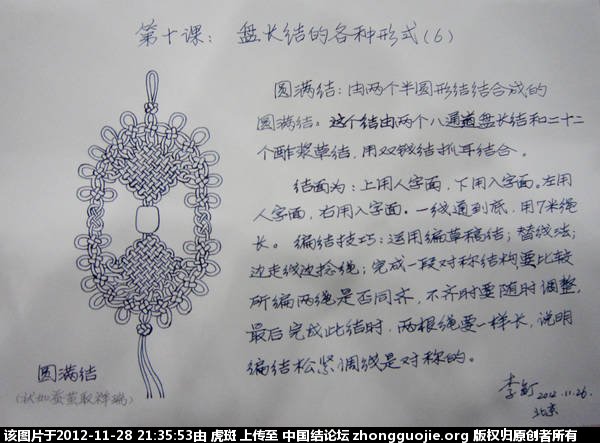 第十课: 盘长结的各种形式(6)
圆满结: 由两个半圆形结结合成的
圆满结。这个结由两个八通道盘长结和二十二
个酢浆草结, 用双钱结抓耳结合。
结面为: 上用人字面, 下用入字面。左用
人字面, 右用入字面。一线通到底, 用7米绳
长。编结技巧: 运用编草稿结; 替线法;
边走线边捻绳; 完成一段对称结构要比较
所编两绳是否同齐, 不齐时要随时调整,
最后完成此结时, 两根绳要一样长, 说明
编结松紧调线是对称的。
圆满结
2012.11.26.
北京
该图片于2012-11-28 21:35:53由 虎斑 上传至 中国结论坛 zhongguojie.org 版权归原创者所有